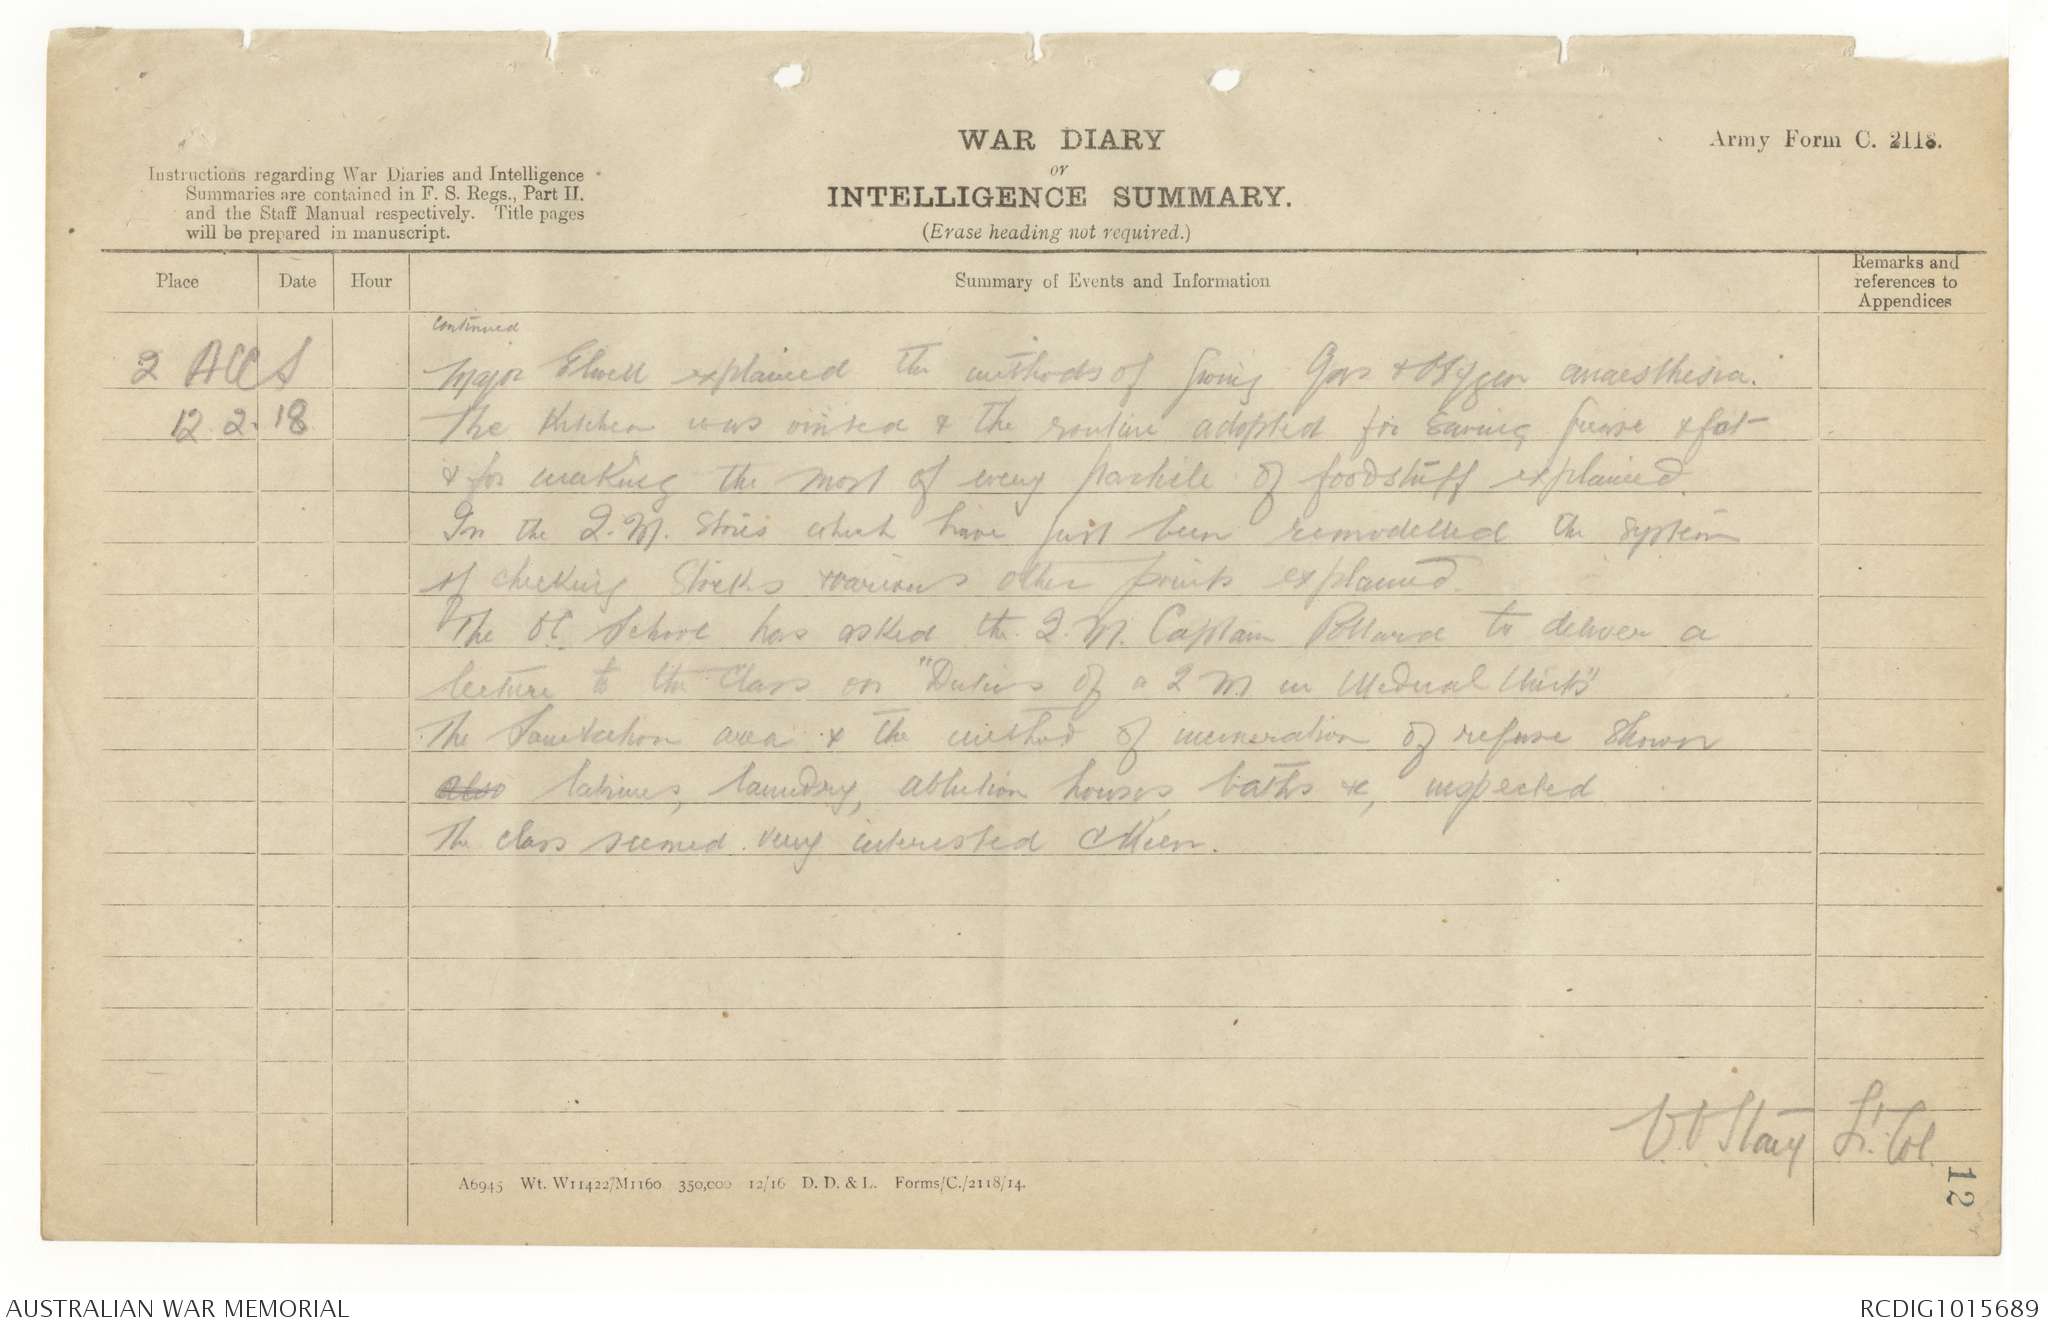 WAR DIARY
or
INTELLIGENCE SUMMARY.
(Erase heading not required.)
Army Form C. 2118.
Instructions regarding War Diaries and Intelligence
Summaries are contained in F. S. Regs., Part II.
and the Staff Manual respectively. Title pages
will be prepared in manuscript.
Place
Date
Hour
Summary of Events and Information
Remarks and
references to
Appendices
continued
2 ACCS
Major Elwell explained the methods of giving Gas & Oxygen anaesthesia.
12.2.18
The Kitchen was visited & the routine adopted for saving & fat
& for making the most of every particle of foodstuff explained.
In the Q.M. Stores which have just been remodelled the system
of checking Stocks & various other points explained.
The OC School has asked the Q.M. Captain Pollard to deliver a
lecture to the Class on "Duties of a Q M in Medical Units"
The Sanitation area & the method of incineration of refuse shown
also latrines, laundry, ablution houses, baths &c, inspected
The class seemed very interested & Keen.
Lt. Col.
12
A6945 Wt. W11422/M1160 350,000 12/16 D. D. & L. Forms/C./2118/14.
AUSTRALIAN WAR MEMORIAL
RCDIG1015689